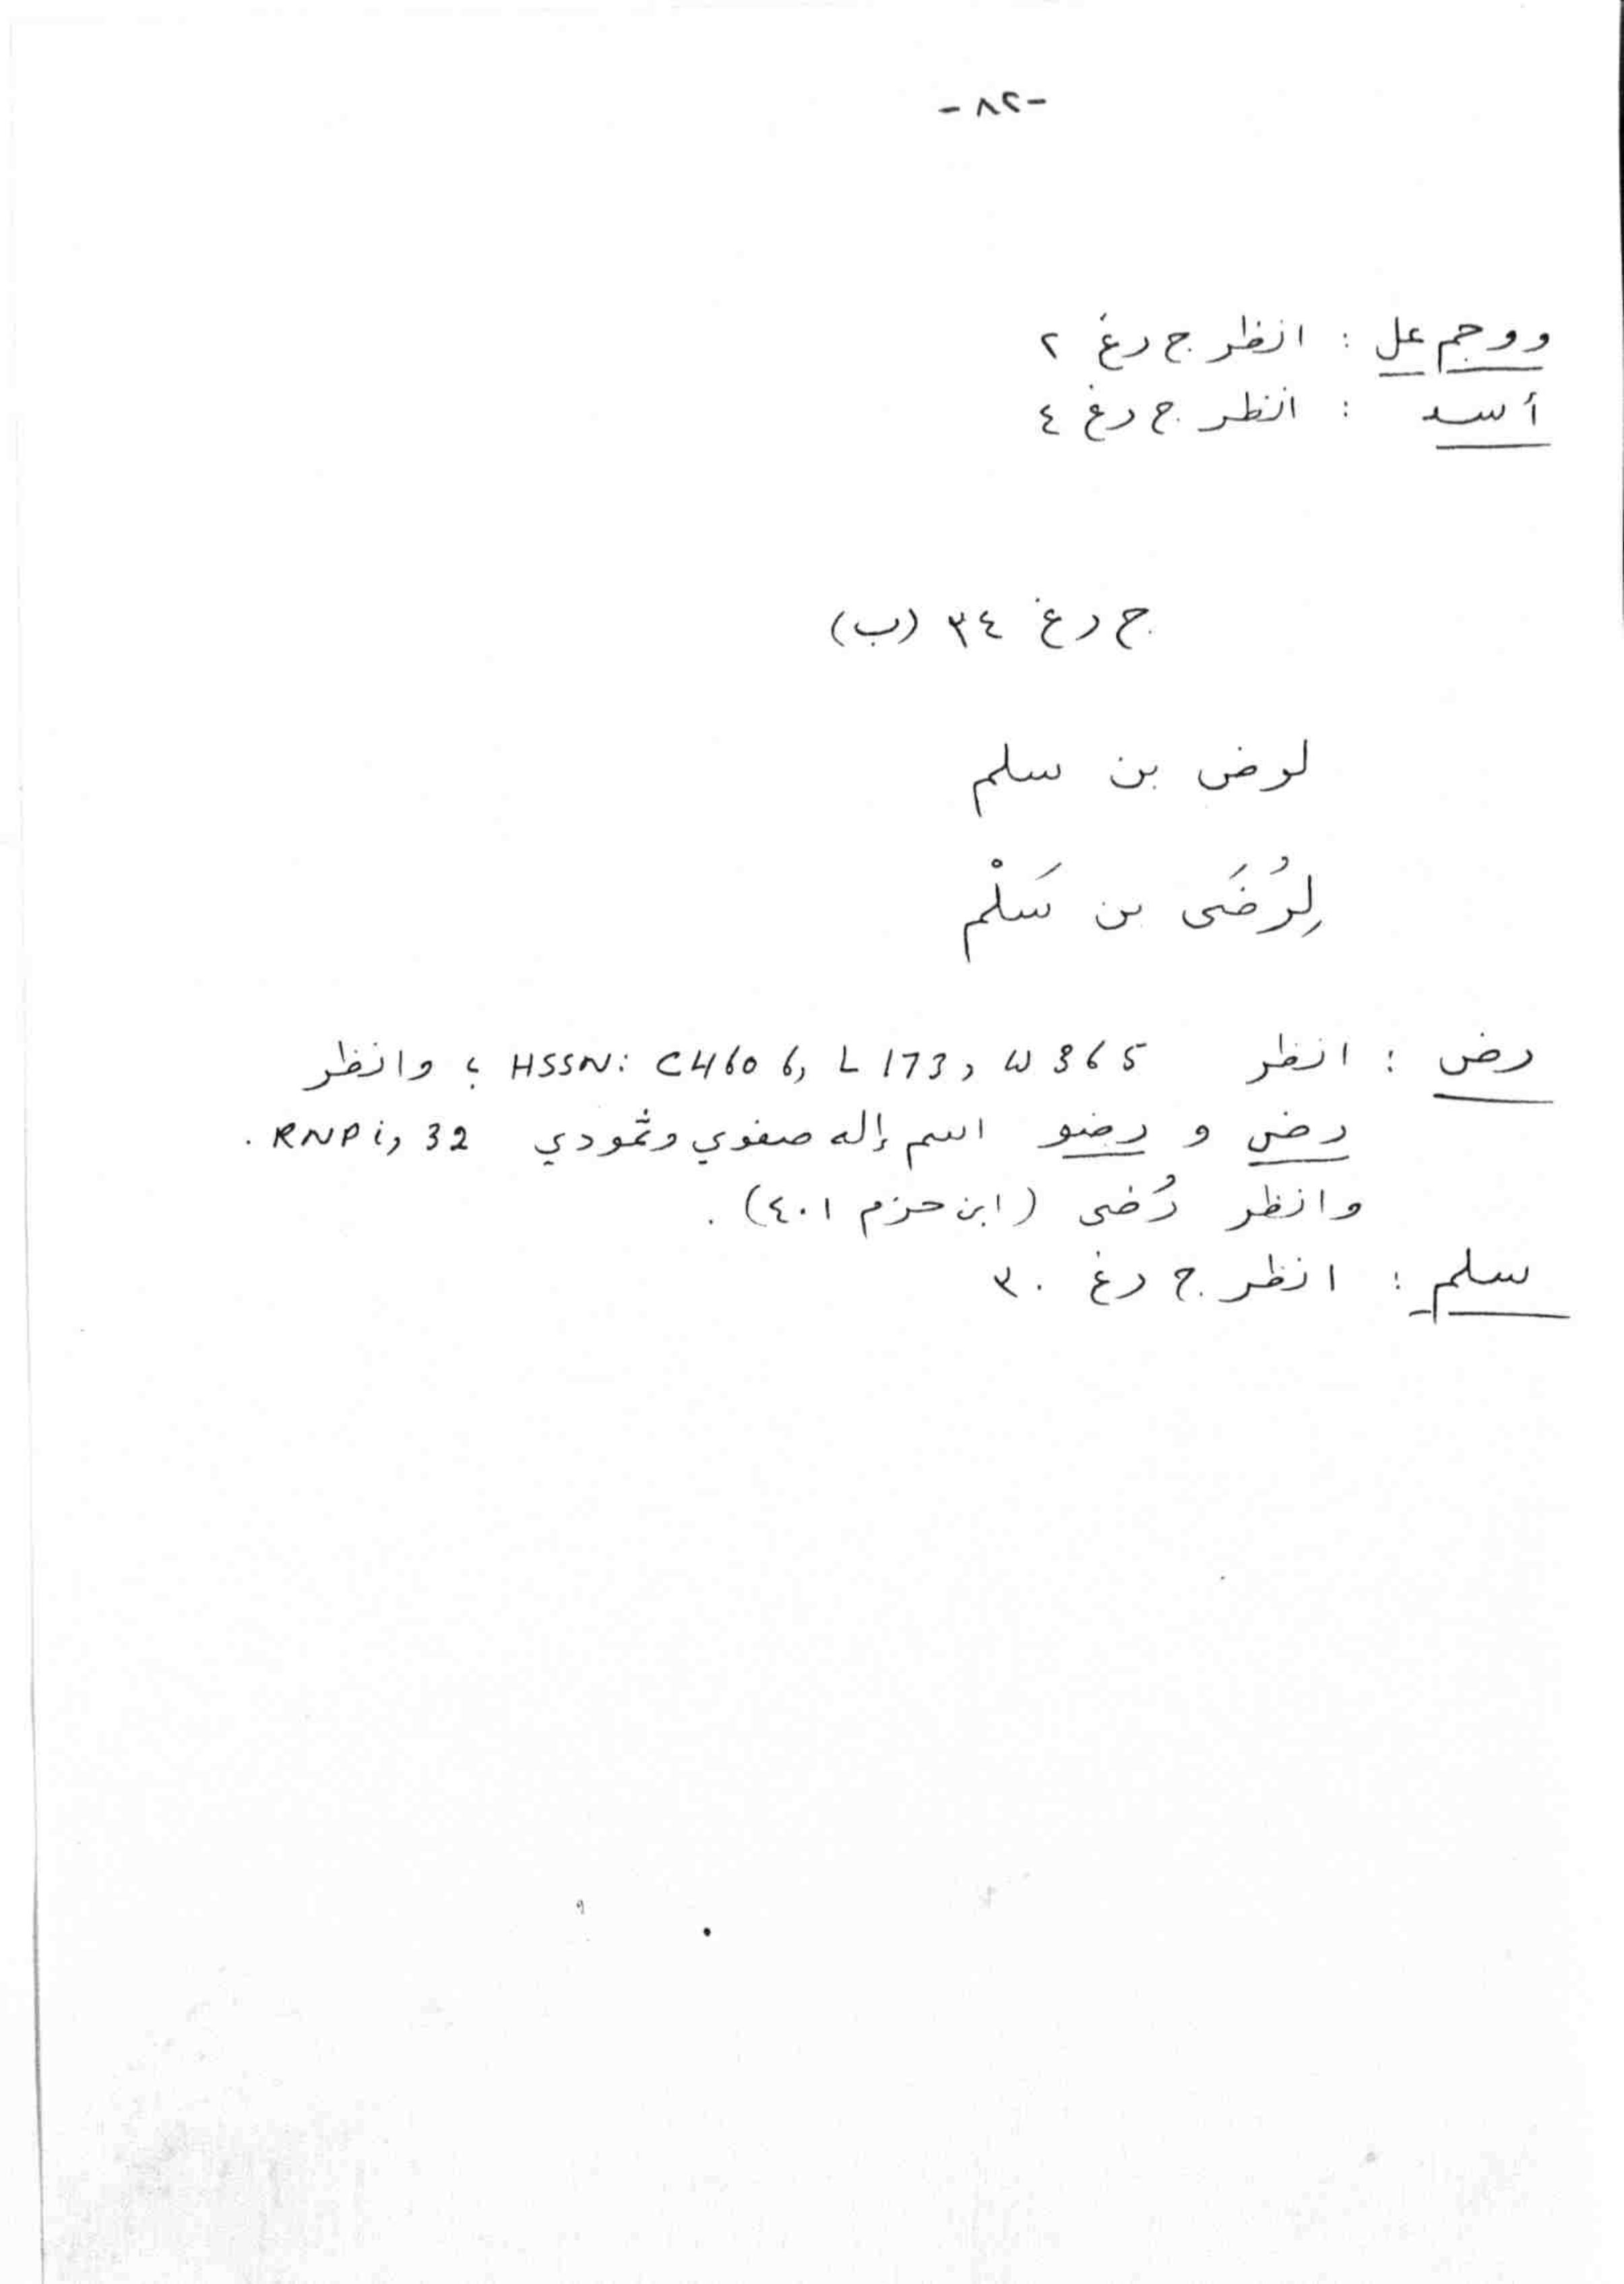 -٨٢-
ووجم عل : انظر ج ر غ ٢
أسد : انظر ج ر غ ٤
ج ر غ ٣٤ (ب)
لرض بن سلم
لِرُضَى بن سَلْم
رض : انظر HSSN: C4606, L173, W365 ؛ وانظر
رض و رضو اسم إله صفوي وثمودي RNP i, 32 .
وانظر رُضى (ابن حزم ٤٠١) .
سلم : انظر ج ر غ ٣٠